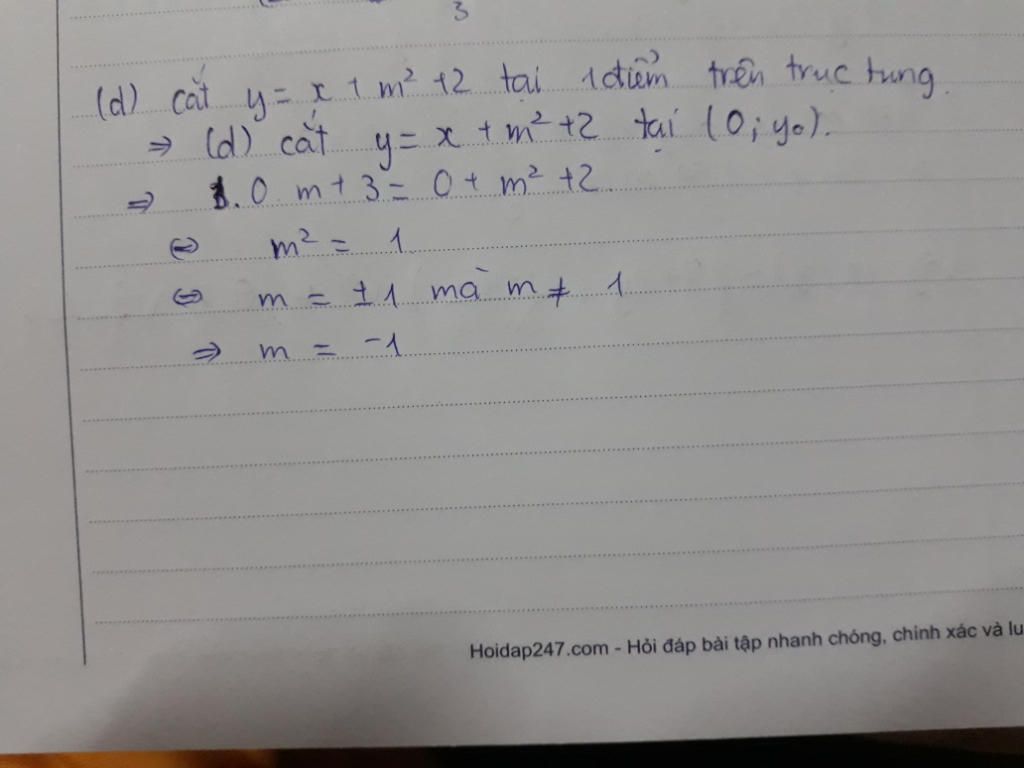 3
(d) cắt y = x + m² + 2 tại 1 điểm trên trục tung.
⇒ (d) cắt y = x + m² + 2 tại (0; y₀).
⇒ 1. 0 m + 3 = 0 + m² + 2.
⇔ m² = 1
⇔ m = ±1 mà m ≠ 1
⇒ m = -1
Hoidap247.com - Hỏi đáp bài tập nhanh chóng, chính xác và lu